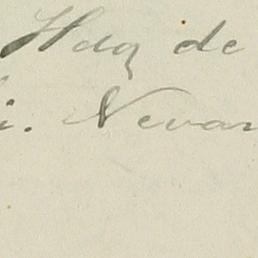 Hdq de
i. Nevar